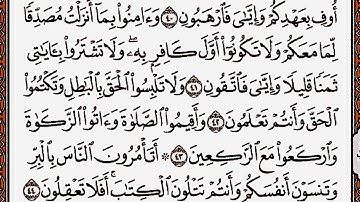 أُوفِ بِعَهۡدِكُمۡ وَإِيَّـٰيَ فَٱرۡهَبُونِ ٤٠ وَءَامِنُواْ بِمَآ أَنزَلۡتُ مُصَدِّقࣰا
لِّمَا مَعَكُمۡ وَلَا تَكُونُوٓاْ أَوَّلَ كَافِرِۭ بِهِۦۖ وَلَا تَشۡتَرُواْ بِـَٔايَـٰتِي
ثَمَنࣰا قَلِيلࣰا وَإِيَّـٰيَ فَٱتَّقُونِ ٤١ وَلَا تَلۡبِسُواْ ٱلۡحَقَّ بِٱلۡبَـٰطِلِ وَتَكۡتُمُواْ
ٱلۡحَقَّ وَأَنتُمۡ تَعۡلَمُونَ ٤٢ وَأَقِيمُواْ ٱلصَّلَوٰةَ وَءَاتُواْ ٱلزَّكَوٰةَ
وَٱرۡكَعُواْ مَعَ ٱلرَّٰكِعِينَ ٤٣ ۞ أَتَأۡمُرُونَ ٱلنَّاسَ بِٱلۡبِرِّ
وَتَنسَوۡنَ أَنفُسَكُمۡ وَأَنتُمۡ تَتۡلُونَ ٱلۡكِتَـٰبَۚ أَفَلَا تَعۡقِلُونَ ٤٤